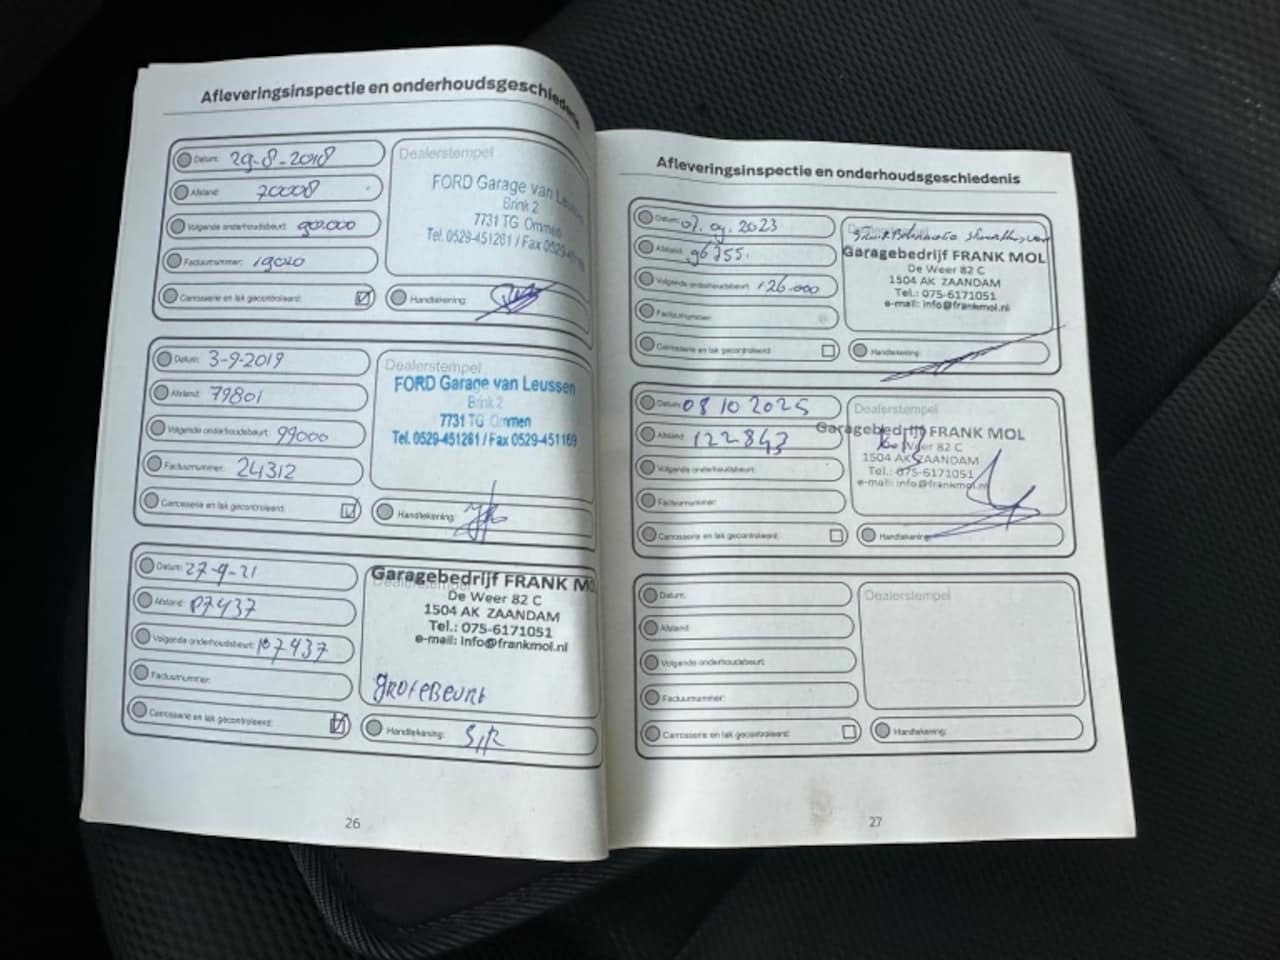 Afleveringsinspectie en onderhoudsgeschiedenis
Datum: 29-8-2018
Afstand: 70008
Volgende onderhoudsbeurt: 90.000
Factuurnummer: 19020
Carrosserie en lak gecontroleerd:
Dealerstempel
FORD Garage van Leussen
Brink 2
7731 TG Ommen
Tel. 0529-451261 / Fax 0529-451169
Handtekening:
Datum: 3-9-2019
Afstand: 79801
Volgende onderhoudsbeurt: 99000
Factuurnummer: 24312
Carrosserie en lak gecontroleerd:
Dealerstempel
FORD Garage van Leussen
Brink 2
7731 TG Ommen
Tel. 0529-451261 / Fax 0529-451169
Handtekening:
Datum: 27-9-21
Afstand: 87437
Volgende onderhoudsbeurt: 107437
Factuurnummer:
Carrosserie en lak gecontroleerd:
Dealerstempel
Garagebedrijf FRANK MOL
De Weer 82 C
1504 AK ZAANDAM
Tel.: 075-6171051
e-mail: info@frankmol.nl
GROTE BEURT
Handtekening:
26
Afleveringsinspectie en onderhoudsgeschiedenis
Datum: 07.09.2023
Afstand: 96755.
Volgende onderhoudsbeurt: 126.000
Factuurnummer:
Carrosserie en lak gecontroleerd:
Garagebedrijf FRANK MOL
De Weer 82 C
1504 AK ZAANDAM
Tel.: 075-6171051
e-mail: info@frankmol.nl
Handtekening:
Datum: 08 10 2025
Afstand: 122843
Volgende onderhoudsbeurt:
Factuurnummer:
Carrosserie en lak gecontroleerd:
Dealerstempel
Garagebedrijf FRANK MOL
De Weer 82 C
1504 AK ZAANDAM
Tel.: 075-6171051
e-mail: info@frankmol.nl
Handtekening:
Datum:
Afstand:
Volgende onderhoudsbeurt:
Factuurnummer:
Carrosserie en lak gecontroleerd:
Dealerstempel
Handtekening:
27